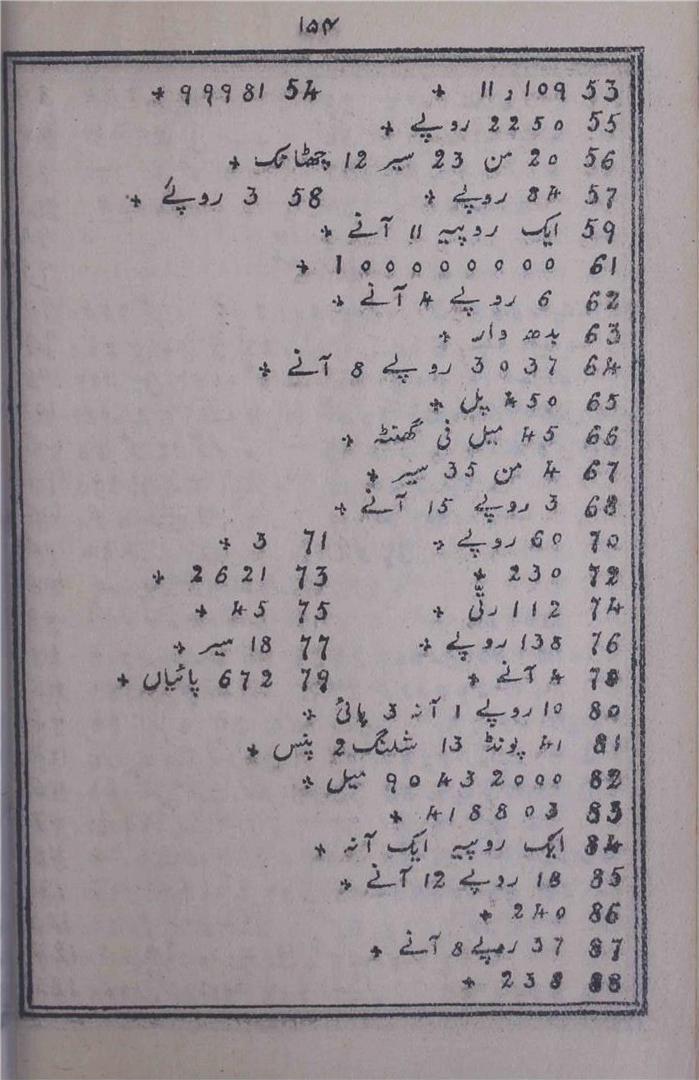 ۱۵۴
53 109 و 11 + 54 99981 +
55 2250 روپے +
56 20 من 23 سیر 12 چھٹانک +
57 84 روپے + 58 3 روپے +
59 ایک روپیہ 11 آنے +
61 1000000000 +
62 6 روپے 4 آنے +
63 بدھ وار +
64 3037 روپے 8 آنے +
65 450 پل +
66 45 میل فی گھنٹہ +
67 4 من 35 سیر +
68 3 روپے 15 آنے +
70 60 روپے + 71 3 +
72 230 + 73 2621 +
74 112 رتّی + 75 45 +
76 138 روپے + 77 18 سیر +
78 4 آنے + 79 672 پائیاں +
80 10 روپے 1 آنہ 3 پائی +
81 41 پونڈ 13 شلنگ 2 پنس +
82 90432000 میل +
83 418803 +
84 ایک روپیہ ایک آنہ +
85 18 روپے 12 آنے +
86 240 +
87 37 روپے 8 آنے +
88 238 +